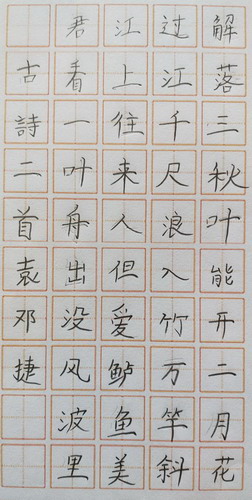 解落三秋叶能开二月花
过江千尺浪入竹万竿斜
江上往来人但爱鲈鱼美
君看一叶舟出没风波里
古詩二首袁邓捷